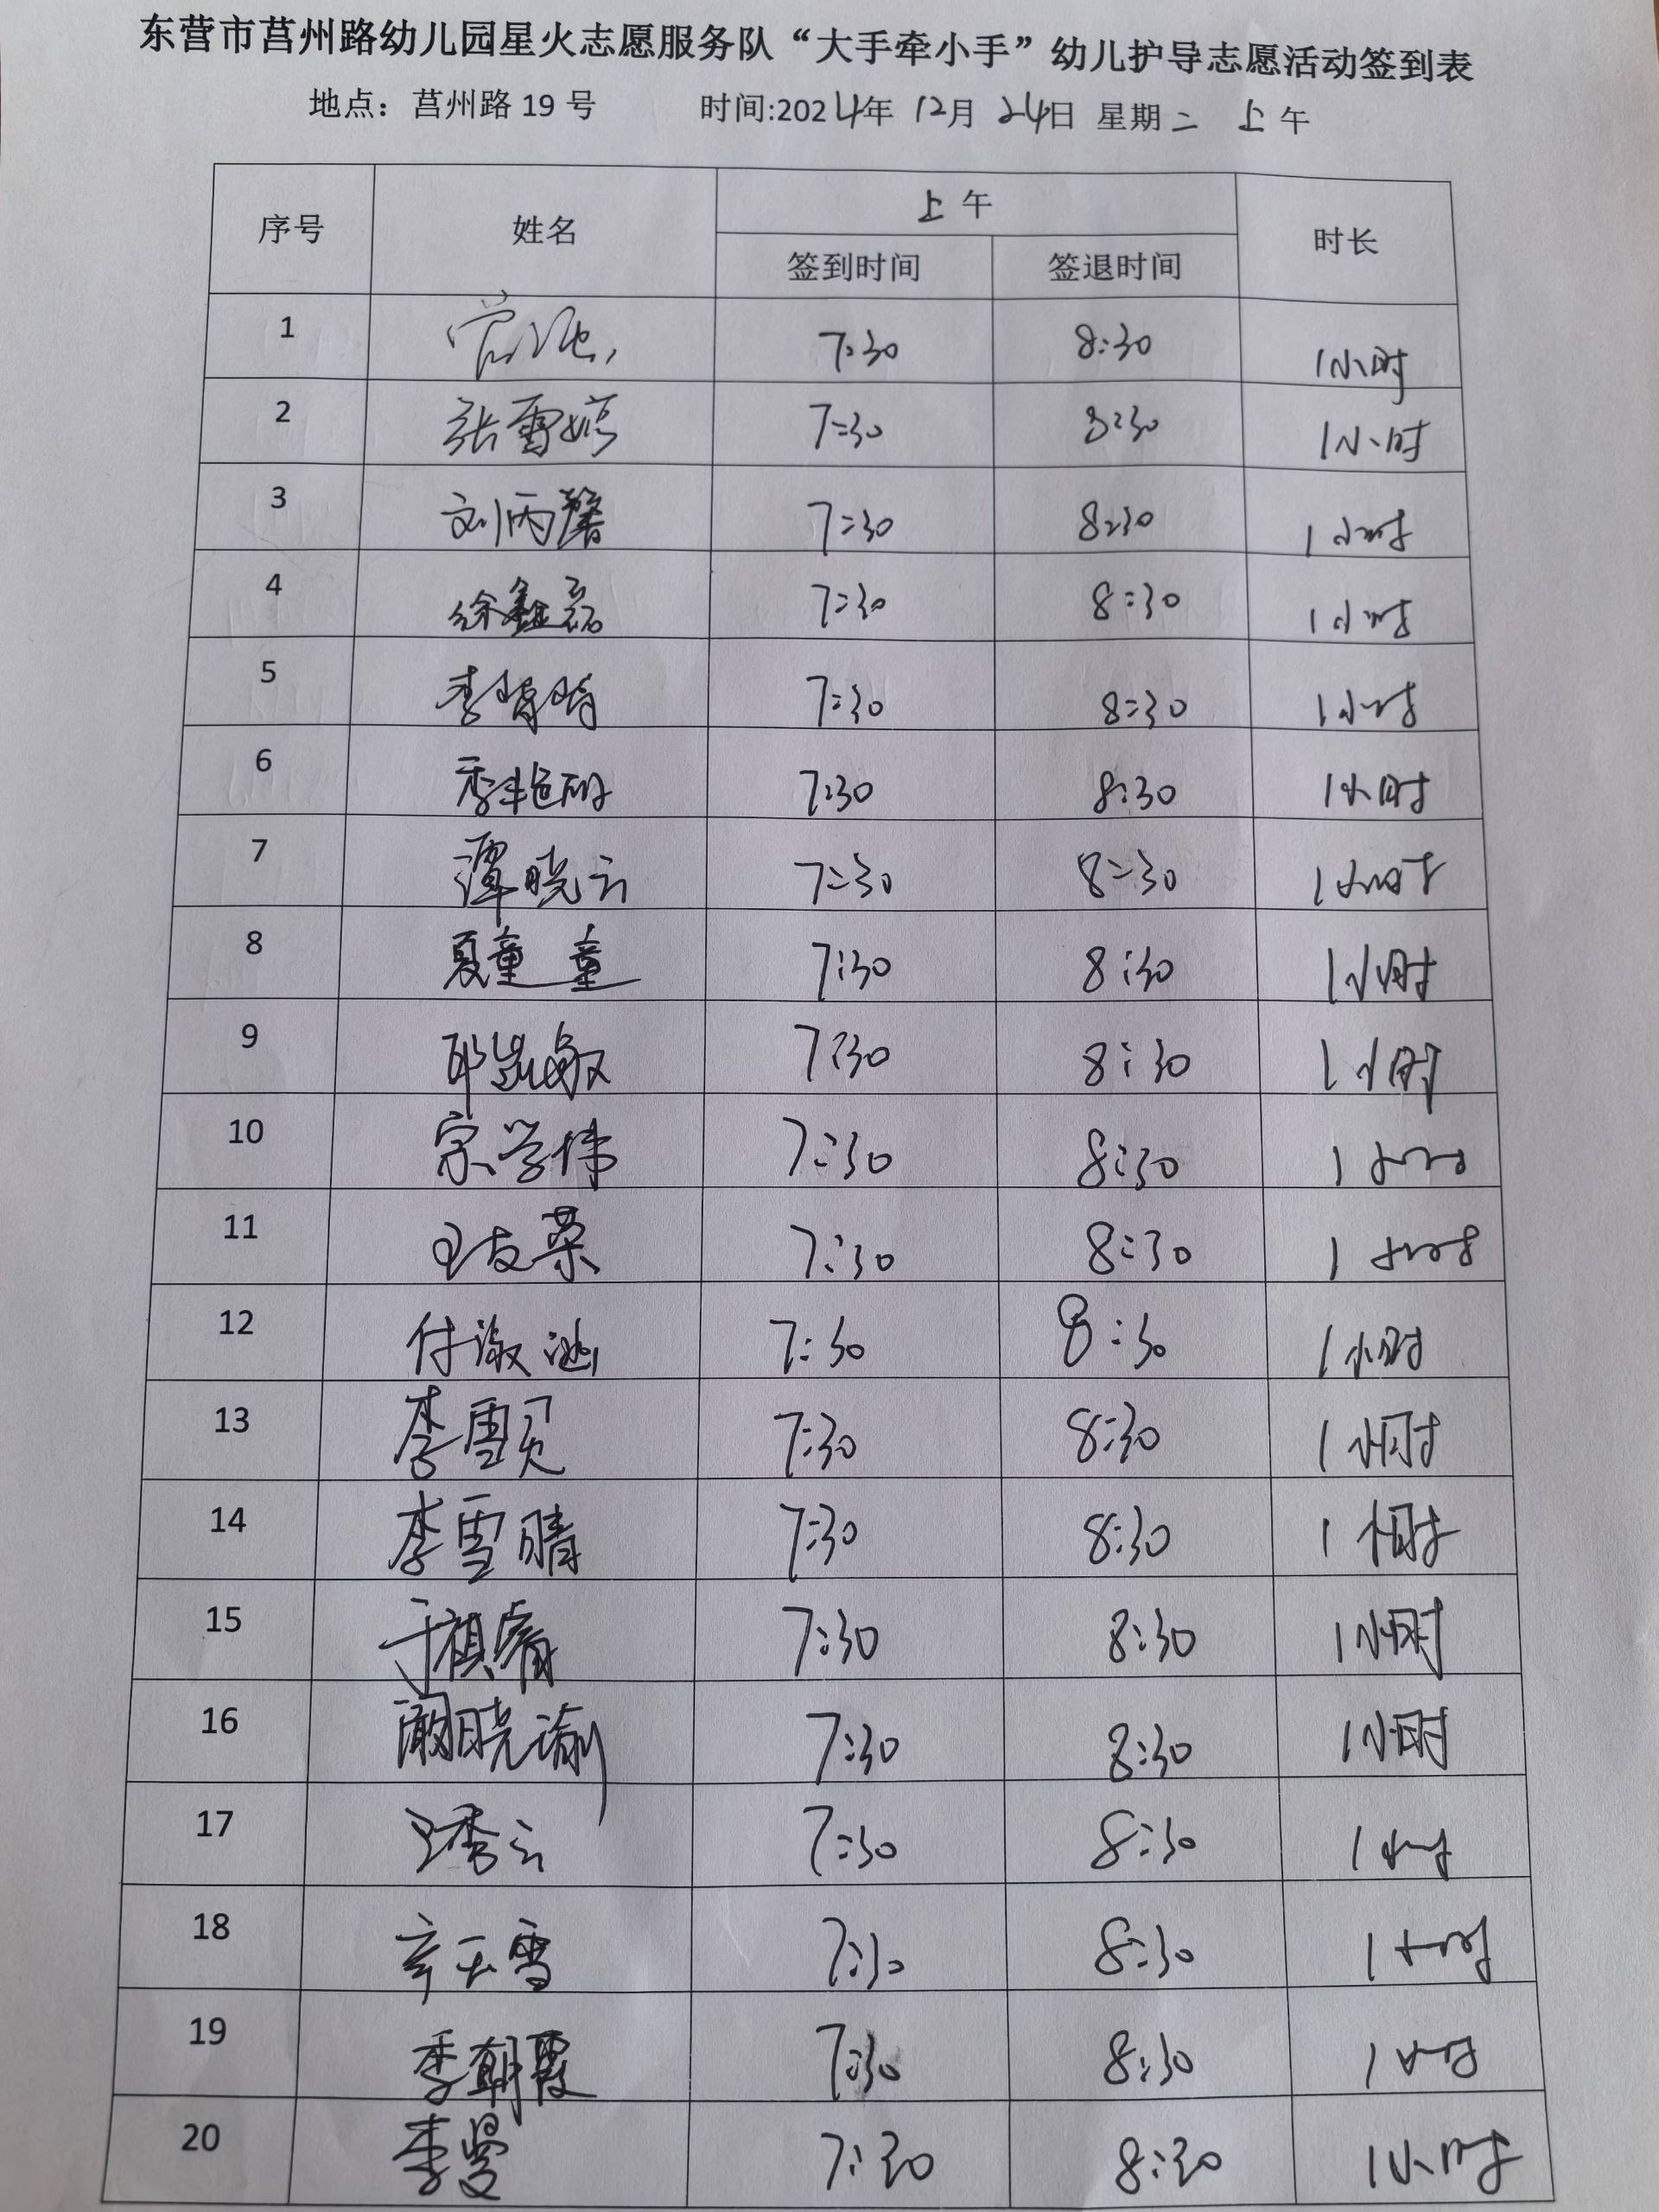 东营市莒州路幼儿园星火志愿服务队“大手牵小手”幼儿护导志愿活动签到表
地点：莒州路 19 号 时间:2024年 12月 24日 星期二 上午
序号 姓名 上午 时长
签到时间 签退时间
1 7:30 8:30 1小时
2 张雪婷 7:30 8:30 1小时
3 刘丙馨 7:30 8:30 1小时
4 徐鑫磊 7:30 8:30 1小时
5 李晴晴 7:30 8:30 1小时
6 季艳丽 7:30 8:30 1小时
7 谭晓云 7:30 8:30 1小时
8 夏童童 7:30 8:30 1小时
9 邱岩敏 7:30 8:30 1小时
10 宗学伟 7:30 8:30 1小时
11 王友荣 7:30 8:30 1小时
12 付淑涵 7:30 8:30 1小时
13 李雪贝 7:30 8:30 1小时
14 李雪晴 7:30 8:30 1小时
15 于祺睿 7:30 8:30 1小时
16 阚晓瑜 7:30 8:30 1小时
17 王秀云 7:30 8:30 1小时
18 辛天雪 7:30 8:30 1小时
19 季朝霞 7:30 8:30 1小时
20 李曼 7:30 8:30 1小时